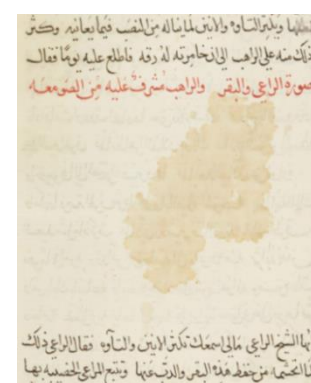 ويكثر التأوه والأنين لما يناله من النصب فيما يعانيه وكثر
ذلك منه على الراهب الى ان خامرته له رقة فاطلع عليه يوما فقال
صورة الراعي والبقر والراهب مشرف عليه من الصومعه
ايها الشيخ الراعي مالي اسمعك تكثر الانين والتأوه فقال الراعي ذلك
من حفظ هذه البقر والذب عنها وتتبع المراعي الخصيبه بها